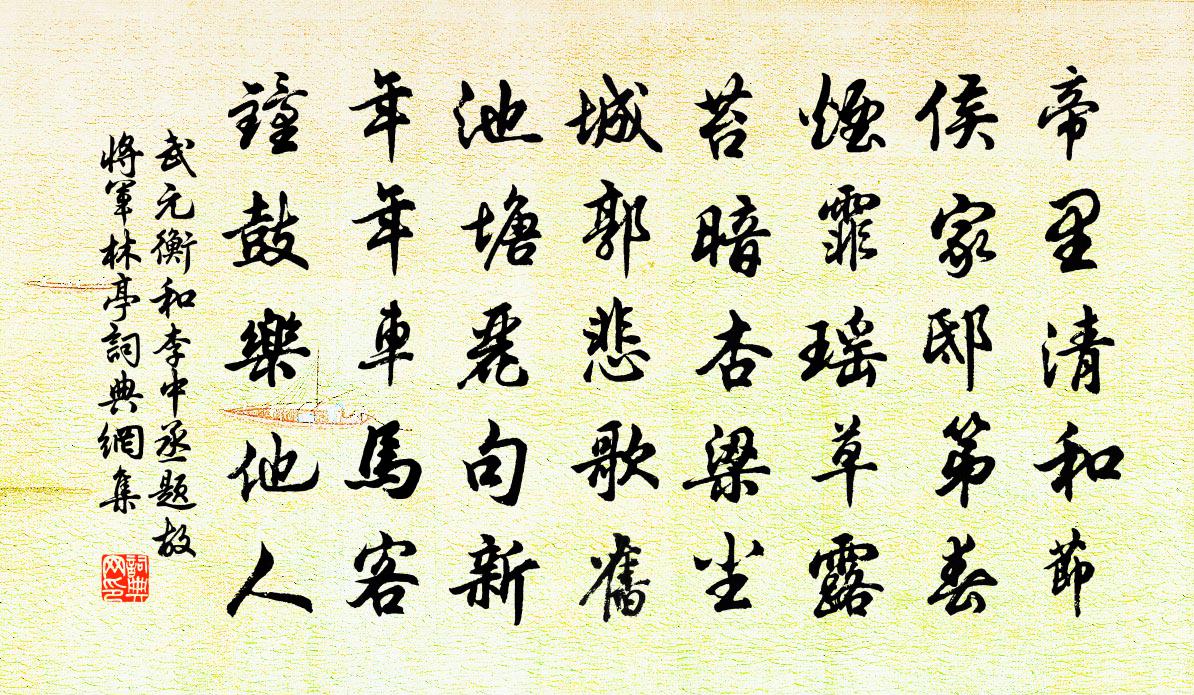 帝里清和節
侯家邸第春
煙霏瑤草露
苔暗杏梁尘
城郭悲歌舊
池塘麗句新
年年車馬客
鐘鼓樂他人
武元衡和李中丞題故
將軍林亭詞典網集
詞典
网印